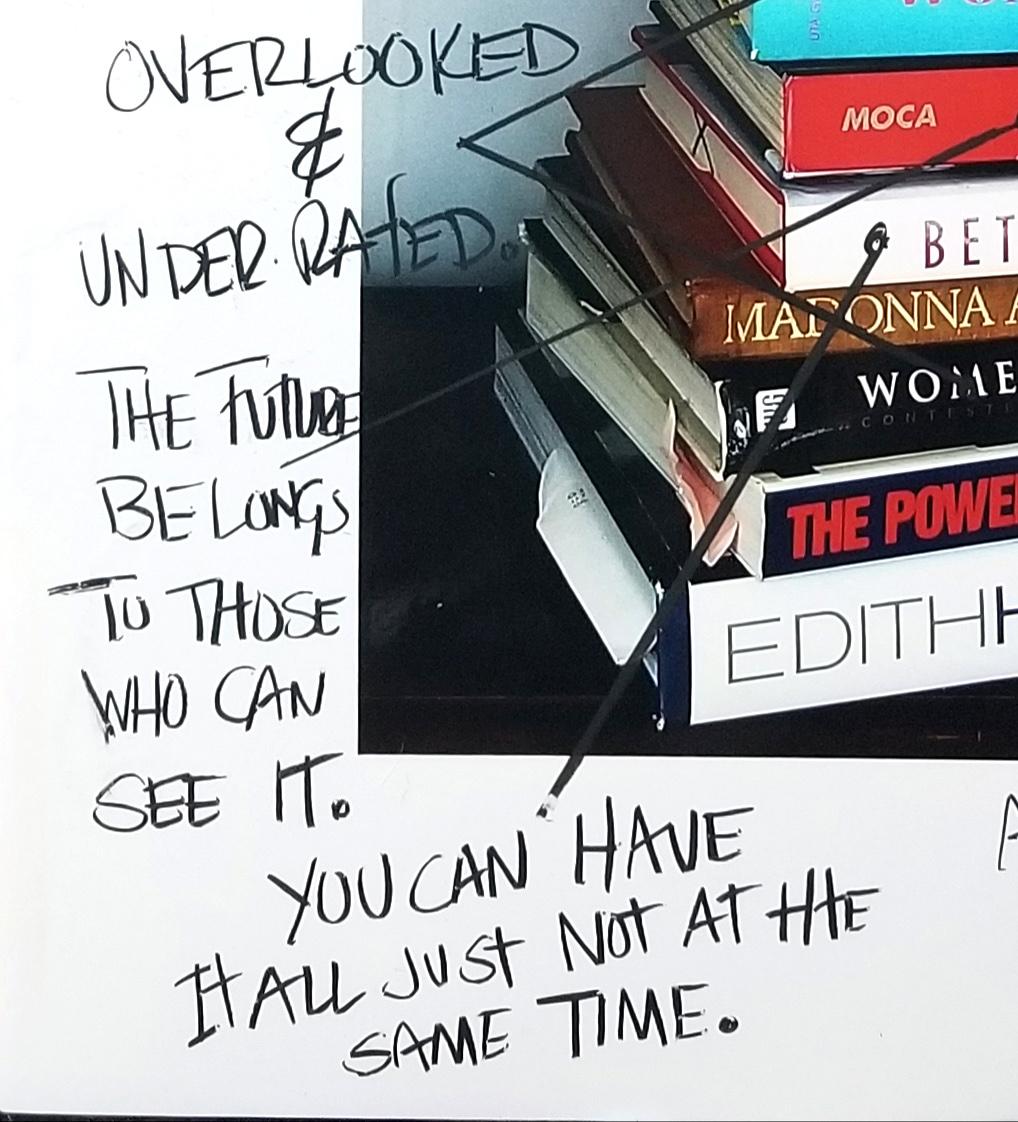 OVERLOOKED
&
UNDER.RATED.
THE FUTURE
BELONGS
TO THOSE
WHO CAN
SEE IT.
MOCA
BET
MADONNA A
WOME
CONTEST
THE POWE
EDITHH
YOU CAN HAVE
IT ALL JUST NOT AT THE
SAME TIME.